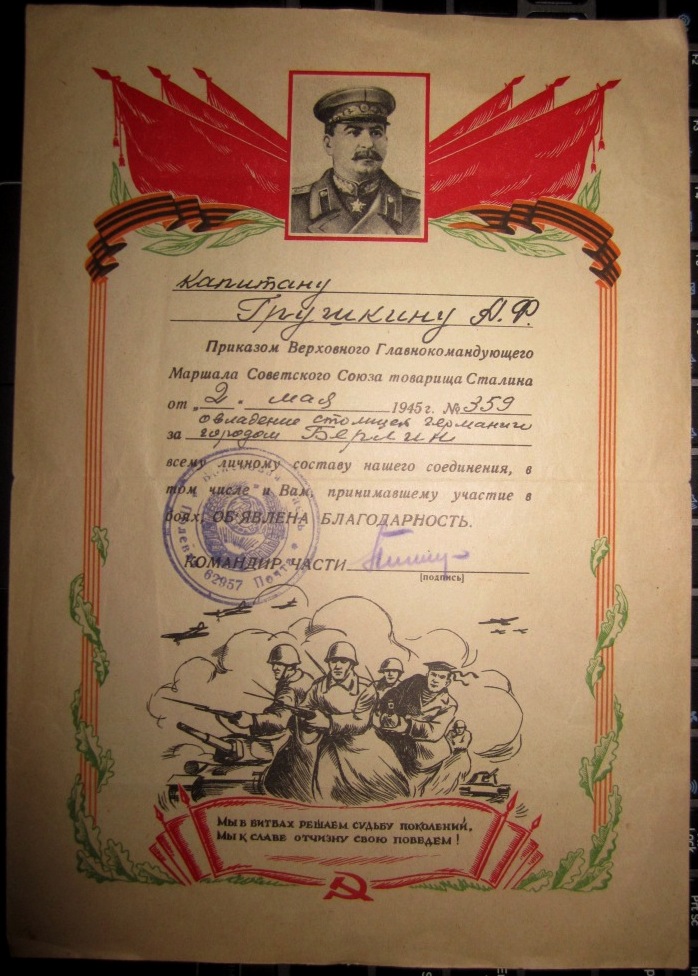 Капитану
Грушкину А.Ф.
Приказом Верховного Главнокомандующего
Маршала Советского Союза товарища Сталина
от „2. мая 1945 г. № 359
за овладение столицей Германии
городом Берлин
всему личному составу нашего соединения, в
том числе и Вам, принимавшему участие в
боях, ОБ'ЯВЛЕНА БЛАГОДАРНОСТЬ.
КОМАНДИР ЧАСТИ
[подпись]
Войсковая часть
Полевая Почта
62957
МЫ В БИТВАХ РЕШАЕМ СУДЬБУ ПОКОЛЕНИЙ,
МЫ К СЛАВЕ ОТЧИЗНУ СВОЮ ПОВЕДЕМ!